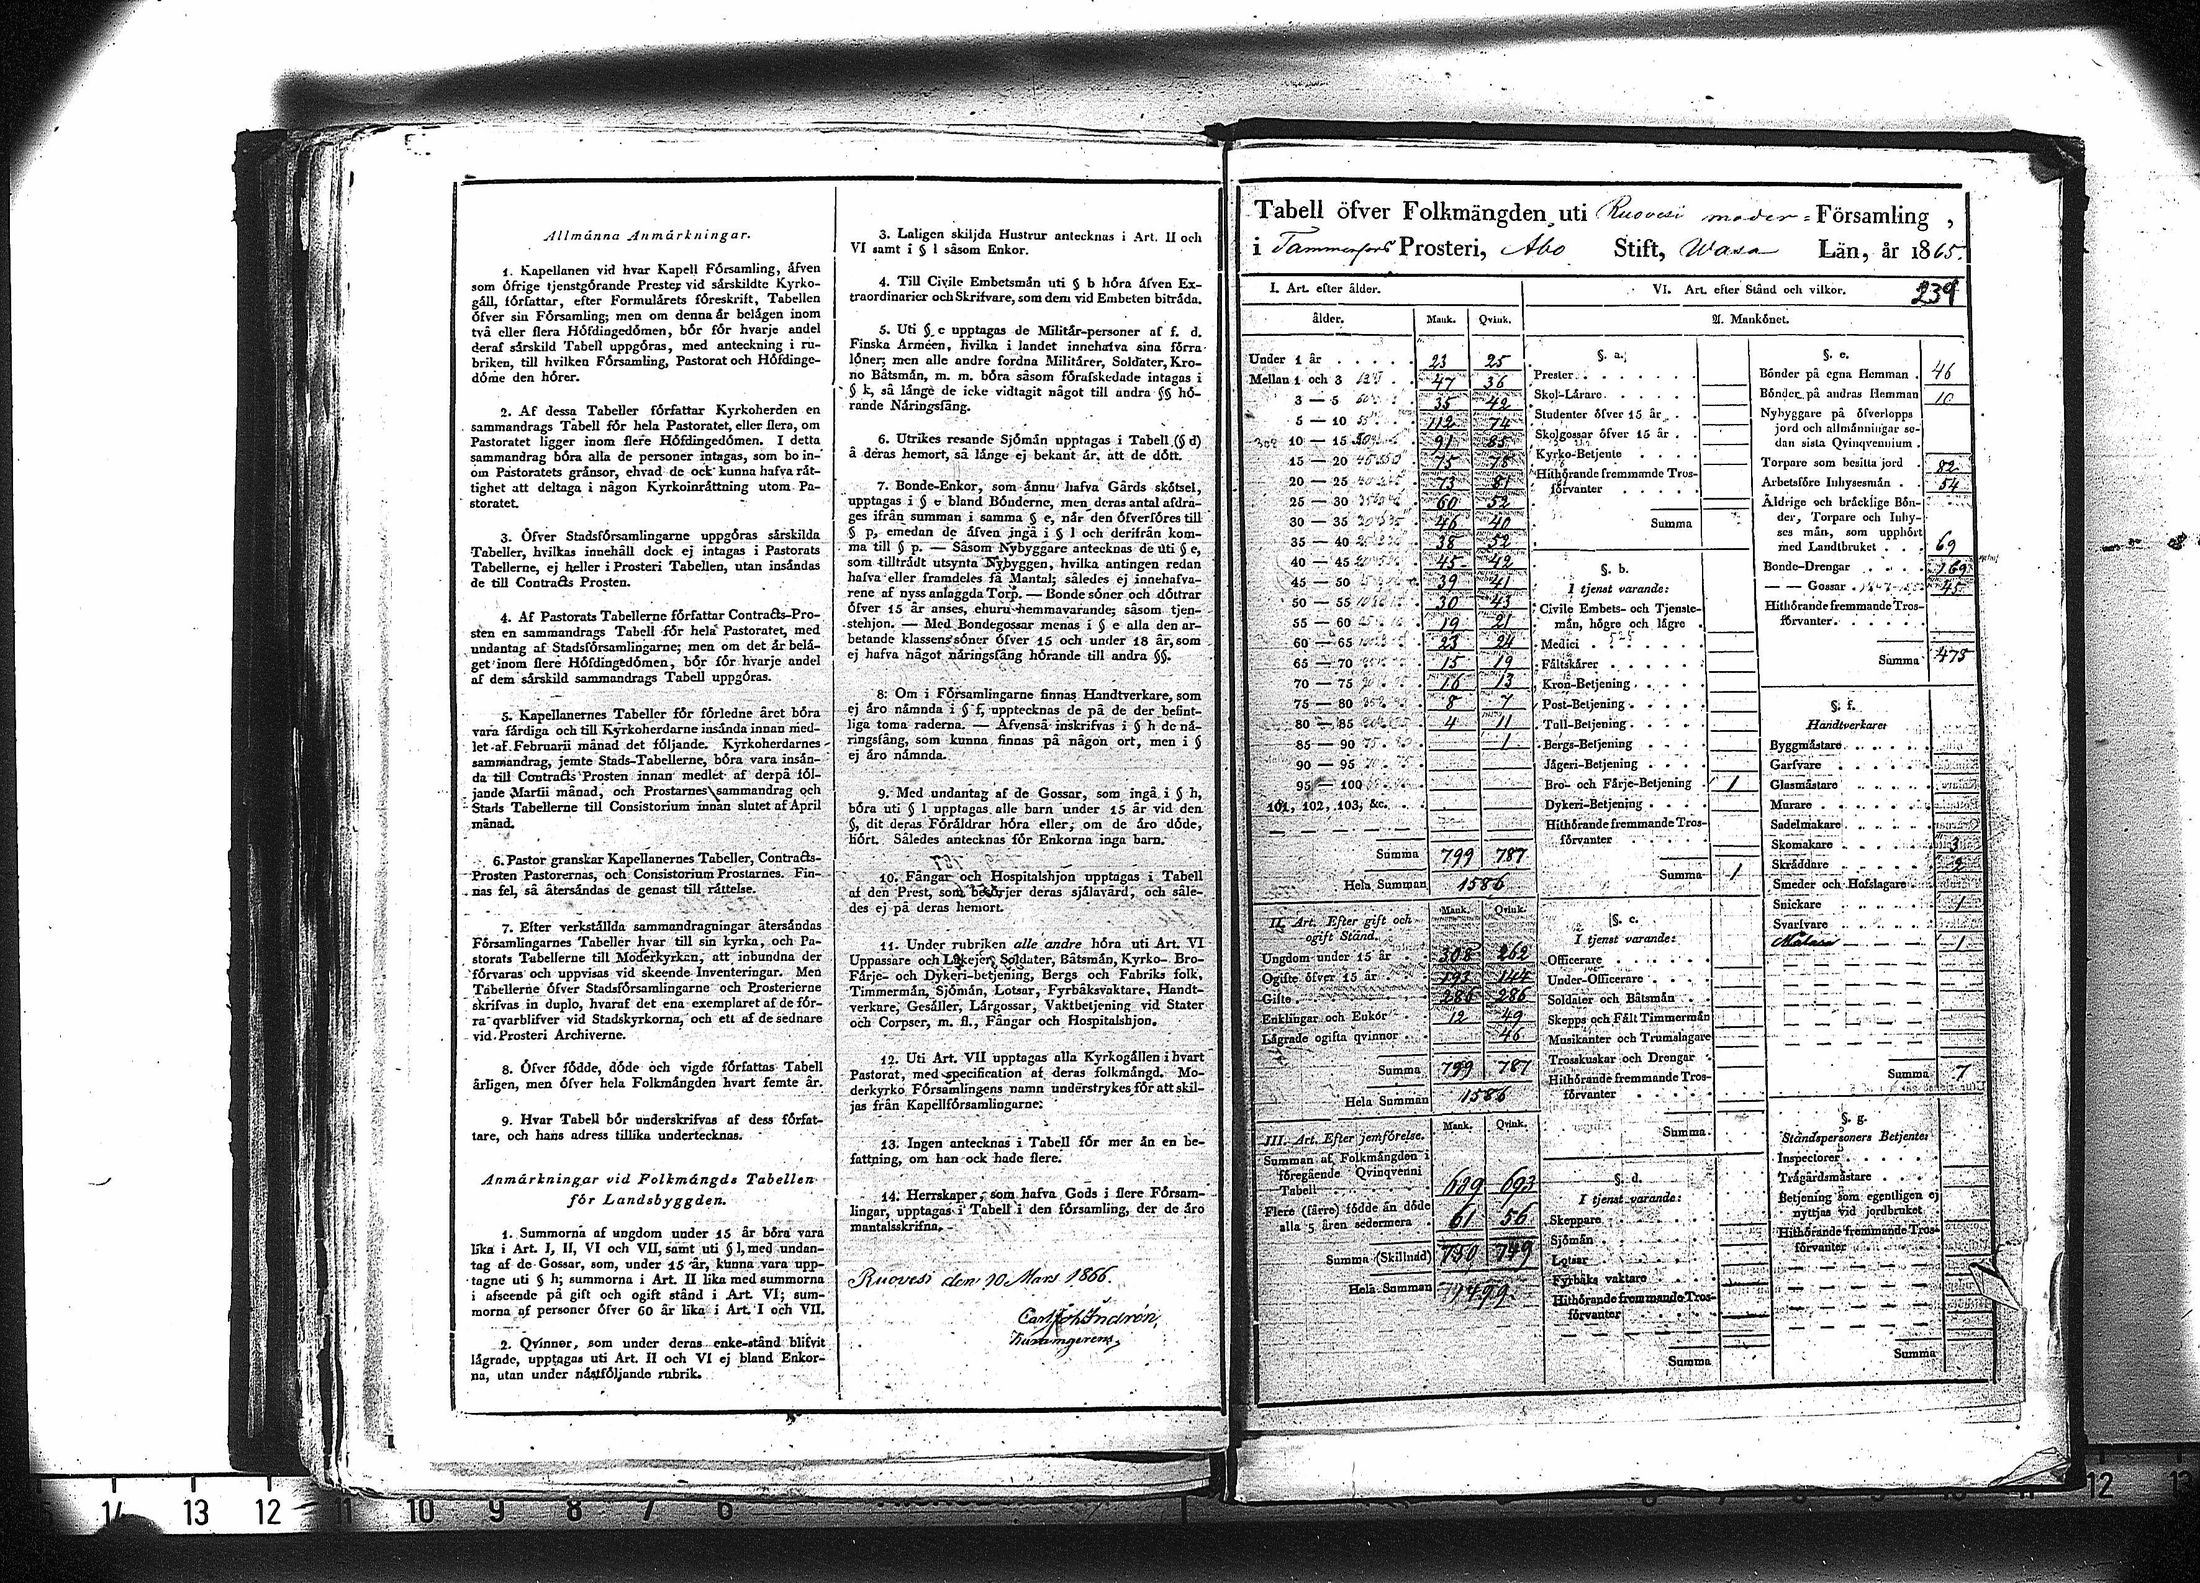 Allmänna Anmärkningar.
1. Kapellanen vid hvar Kapell Församling, äfven
som öfrige tjenstgörande Prester vid särskildte Kyrko-
gäll, författar, efter Formulärets föreskrift, Tabellen
öfver sin Församling; men om denna är belägen inom
två eller flera Höfdingedömen, bör för hvarje andel
deraf särskild Tabell uppgöras, med anteckning i ru-
briken, till hvilken Församling, Pastorat och Höfdinge-
döme den hörer.
2. Af dessa Tabeller författar Kyrkoherden en
sammandrags Tabell för hela Pastoratet, eller flera, om
Pastoratet ligger inom flere Höfdingedömen. I detta
sammandrag böra alla de personer intagas, som bo in-
om Pastoratets gränsor, ehvad de ock kunna hafva rät-
tighet att deltaga i någon Kyrkoinrättning utom Pa-
storatet.
3. Öfver Stadsförsamlingarne uppgöras särskilda
Tabeller, hvilkas innehåll dock ej intagas i Pastorats
Tabellerne, ej heller i Prosteri Tabellen, utan insändas
de till Contracts Prosten.
4. Af Pastorats Tabellerne författar Contracts-Pro-
sten en sammandrags Tabell för hela Pastoratet, med
undantag af Stadsförsamlingarne; men om det är belä-
get inom flere Höfdingedömen, bör för hvarje andel
af dem särskild sammandrags Tabell uppgöras.
5. Kapellanernes Tabeller för förledne året böra
vara färdiga och till Kyrkoherdarne insända innan med-
let af Februarii månad det följande. Kyrkoherdarnes
sammandrag, jemte Stads-Tabellerne, böra vara insän-
da till Contracts Prosten innan medlet af derpå föl-
jande Martii månad, och Prostarnes sammandrag och
Stads Tabellerne till Consistorium innan slutet af April
månad.
6. Pastor granskar Kapellanernes Tabeller, Contracts-
Prosten Pastorernas, och Consistorium Prostarnes. Fin-
nas fel, så återsändas de genast till rättelse.
7. Efter verkställda sammandragningar återsändas
Församlingarnes Tabeller hvar till sin kyrka, och Pa-
storats Tabellerne till Moderkyrkan, att inbundna der
förvaras och uppvisas vid skeende Inventeringar. Men
Tabellerne öfver Stadsförsamlingarne och Prosterierne
skrifvas in duplo, hvaraf det ena exemplaret af de för-
ra qvarblifver vid Stadskyrkorna, och ett af de sednare
vid Prosteri Archiverne.
8. Öfver födde, döde och vigde författas Tabell
årligen, men öfver hela Folkmängden hvart femte år.
9. Hvar Tabell bör underskrifvas af dess förfat-
tare, och hans adress tillika undertecknas.
Anmärkningar vid Folkmängds Tabellen
för Landsbyggden.
1. Summorna af ungdom under 15 år böra vara
lika i Art. I, II, VI och VII, samt uti § l, med undan-
tag af de Gossar, som, under 15 år, kunna vara upp-
tagne uti § h; summorna i Art. II lika med summorna
i afseende på gift och ogift stånd i Art. VI; sum-
morna af personer öfver 60 år lika i Art. I och VII.
2. Qvinner, som under deras enke-stånd blifvit
lägrade, upptagas uti Art. II och VI ej bland Enkor-
na, utan under nästföljande rubrik.
3. Laligen skiljda Hustrur antecknas i Art. II och
VI samt i § l såsom Enkor.
4. Till Civile Embetsmän uti § b höra äfven Ex-
traordinarier och Skrifvare, som dem vid Embeten biträda.
5. Uti § c upptagas de Militär-personer af f. d.
Finska Arméen, hvilka i landet innehafva sina förra
löner; men alle andre fordna Militärer, Soldater, Kro-
no Båtsmän, m. m. böra såsom förafskedade intagas i
§ k, så länge de icke vidtagit något till andra §§ hö-
rande Näringsfång.
6. Utrikes resande Sjömän upptagas i Tabell (§ d)
å deras hemort, så länge ej bekant är, att de dött.
7. Bonde-Enkor, som ännu hafva Gårds skötsel,
upptagas i § e bland Bönderne, men deras antal afdra-
ges ifrån summan i samma § e, när den öfverföres till
§ p, emedan de äfven ingå i § l och derifrån kom-
ma till § p. — Såsom Nybyggare antecknas de uti § e,
som tillträdt utsynta Nybyggen, hvilka antingen redan
hafva eller framdeles få Mantal; således ej innehafva-
rene af nyss anlaggda Torp. — Bonde söner och döttrar
öfver 15 år anses, ehuru hemmavarande, såsom tjen-
stehjon. — Med Bondegossar menas i § e alla den ar-
betande klassens söner öfver 15 och under 18 år, som
ej hafva något näringsfång hörande till andra §§.
8. Om i Församlingarne finnas Handtverkare, som
ej äro nämnda i § f, upptecknas de på de der befint-
liga toma raderna. — Äfvenså inskrifvas i § h de nä-
ringsfång, som kunna finnas på någon ort, men i §
ej äro nämnda.
9. Med undantag af de Gossar, som ingå i § h,
böra uti § l upptagas alle barn under 15 år vid den
§, dit deras Föräldrar höra eller, om de äro döde,
hört. Således antecknas för Enkorna inga barn.
10. Fångar och Hospitalshjon upptagas i Tabell
af den Prest, som besörjer deras själavård, och såle-
des ej på deras hemort.
11. Under rubriken alle andre höra uti Art. VI
Uppassare och Lakejer, Soldater, Båtsmän, Kyrko- Bro-
Färje- och Dykeri-betjening, Bergs och Fabriks folk,
Timmermän, Sjömän, Lotsar, Fyrbåksvaktare, Handt-
verkare, Gesäller, Lärgossar, Vaktbetjening vid Stater
och Corpser, m. fl., Fångar och Hospitalshjon.
12. Uti Art. VII upptagas alla Kyrkogällen i hvart
Pastorat, med specification af deras folkmängd. Mo-
derkyrko Församlingens namn understrykes för att skil-
jas från Kapellförsamlingarne.
13. Ingen antecknas i Tabell för mer än en be-
fattning, om han ock hade flere.
14. Herrskaper, som hafva Gods i flere Försam-
lingar, upptagas i Tabell i den församling, der de äro
mantalsskrifna.
Ruovesi den 10 Mars 1866.
Carl Joh Indrén,
Tabell öfver Folkmängden uti Ruovesi moder- Församling,
i Tammerfors Prosteri, Åbo Stift, Wasa Län, år 1865.
239
I. Art. efter ålder.
ålder. Mank. Qvink.
Under 1 år 23 25
Mellan 1 och 3 47 36
3 — 5 35 42
5 — 10 112 74
10 — 15 91 85
15 — 20 75 78
20 — 25 73 81
25 — 30 60 52
30 — 35 46 40
35 — 40 38 52
40 — 45 45 42
45 — 50 39 41
50 — 55 30 43
55 — 60 19 21
60 — 65 23 24
65 — 70 15 19
70 — 75 16 13
75 — 80 8 7
80 — 85 4 11
85 — 90 1
90 — 95
95 — 100
101, 102, 103, &c.
Summa 799 787
Hela Summan 1586
II. Art. Efter gift och ogift Stånd. Mank. Qvink.
Ungdom under 15 år 308 262
Ogifte öfver 15 år 193 144
Gifte 286 286
Enklingar och Enkor 12 49
Lägrade ogifta qvinnor 46
Summa 799 787
Hela Summan 1586
III. Art. Efter jemförelse. Mank. Qvink.
Summan af Folkmängden i
föregående Qvinqvenni
Tabell 689 693
Flere (färre) födde än döde
alla 5 åren sedermera 61 56
Summa (Skillnad) 750 749
Hela Summan 1499
VI. Art. efter Stånd och vilkor.
A. Mankönet.
§. a.
Prester
Skol-Lärare
Studenter öfver 15 år
Skolgossar öfver 15 år
Kyrko-Betjente
Hithörande fremmande Tros-
förvanter
Summa
§. b.
I tjenst varande:
Civile Embets- och Tjenste-
män, högre och lägre
Medici
Fältskärer
Kron-Betjening
Post-Betjening
Tull-Betjening
Bergs-Betjening
Jägeri-Betjening
Bro- och Färje-Betjening 1
Dykeri-Betjening
Hithörande fremmande Tros-
förvanter
Summa 1
§. c.
I tjenst varande:
Officerare
Under-Officerare
Soldater och Båtsmän
Skepps och Fält Timmermän
Musikanter och Trumslagare
Trosskuskar och Drengar
Hithörande fremmande Tros-
förvanter
Summa
§. d.
I tjenst varande:
Skeppare
Sjömän
Lotsar
Fyrbåks vaktare
Hithörande fremmande Tros-
förvanter
Summa
§. e.
Bönder på egna Hemman 46
Bönder på andras Hemman 10
Nybyggare på öfverlopps
jord och allmänningar se-
dan sista Qvinqvennium
Torpare som besitta jord 82
Arbetsföre Inhysesmän 54
Åldrige och bräcklige Bön-
der, Torpare och Inhy-
ses män, som upphört
med Landtbruket 69
Bonde-Drengar 169
— — Gossar 45
Hithörande fremmande Tros-
förvanter
Summa 475
§. f.
Handtverkare
Byggmästare
Garfvare
Glasmästare
Murare
Sadelmakare
Skomakare 3
Skräddare 2
Smeder och Hofslagare
Snickare 1
Svarfvare
Målare 1
Summa 7
§. g.
Ståndspersoners Betjente:
Inspectorer
Trägårdsmästare
Betjening som egentligen ej
nyttjas vid jordbruket
Hithörande fremmande Tros-
förvanter
Summa